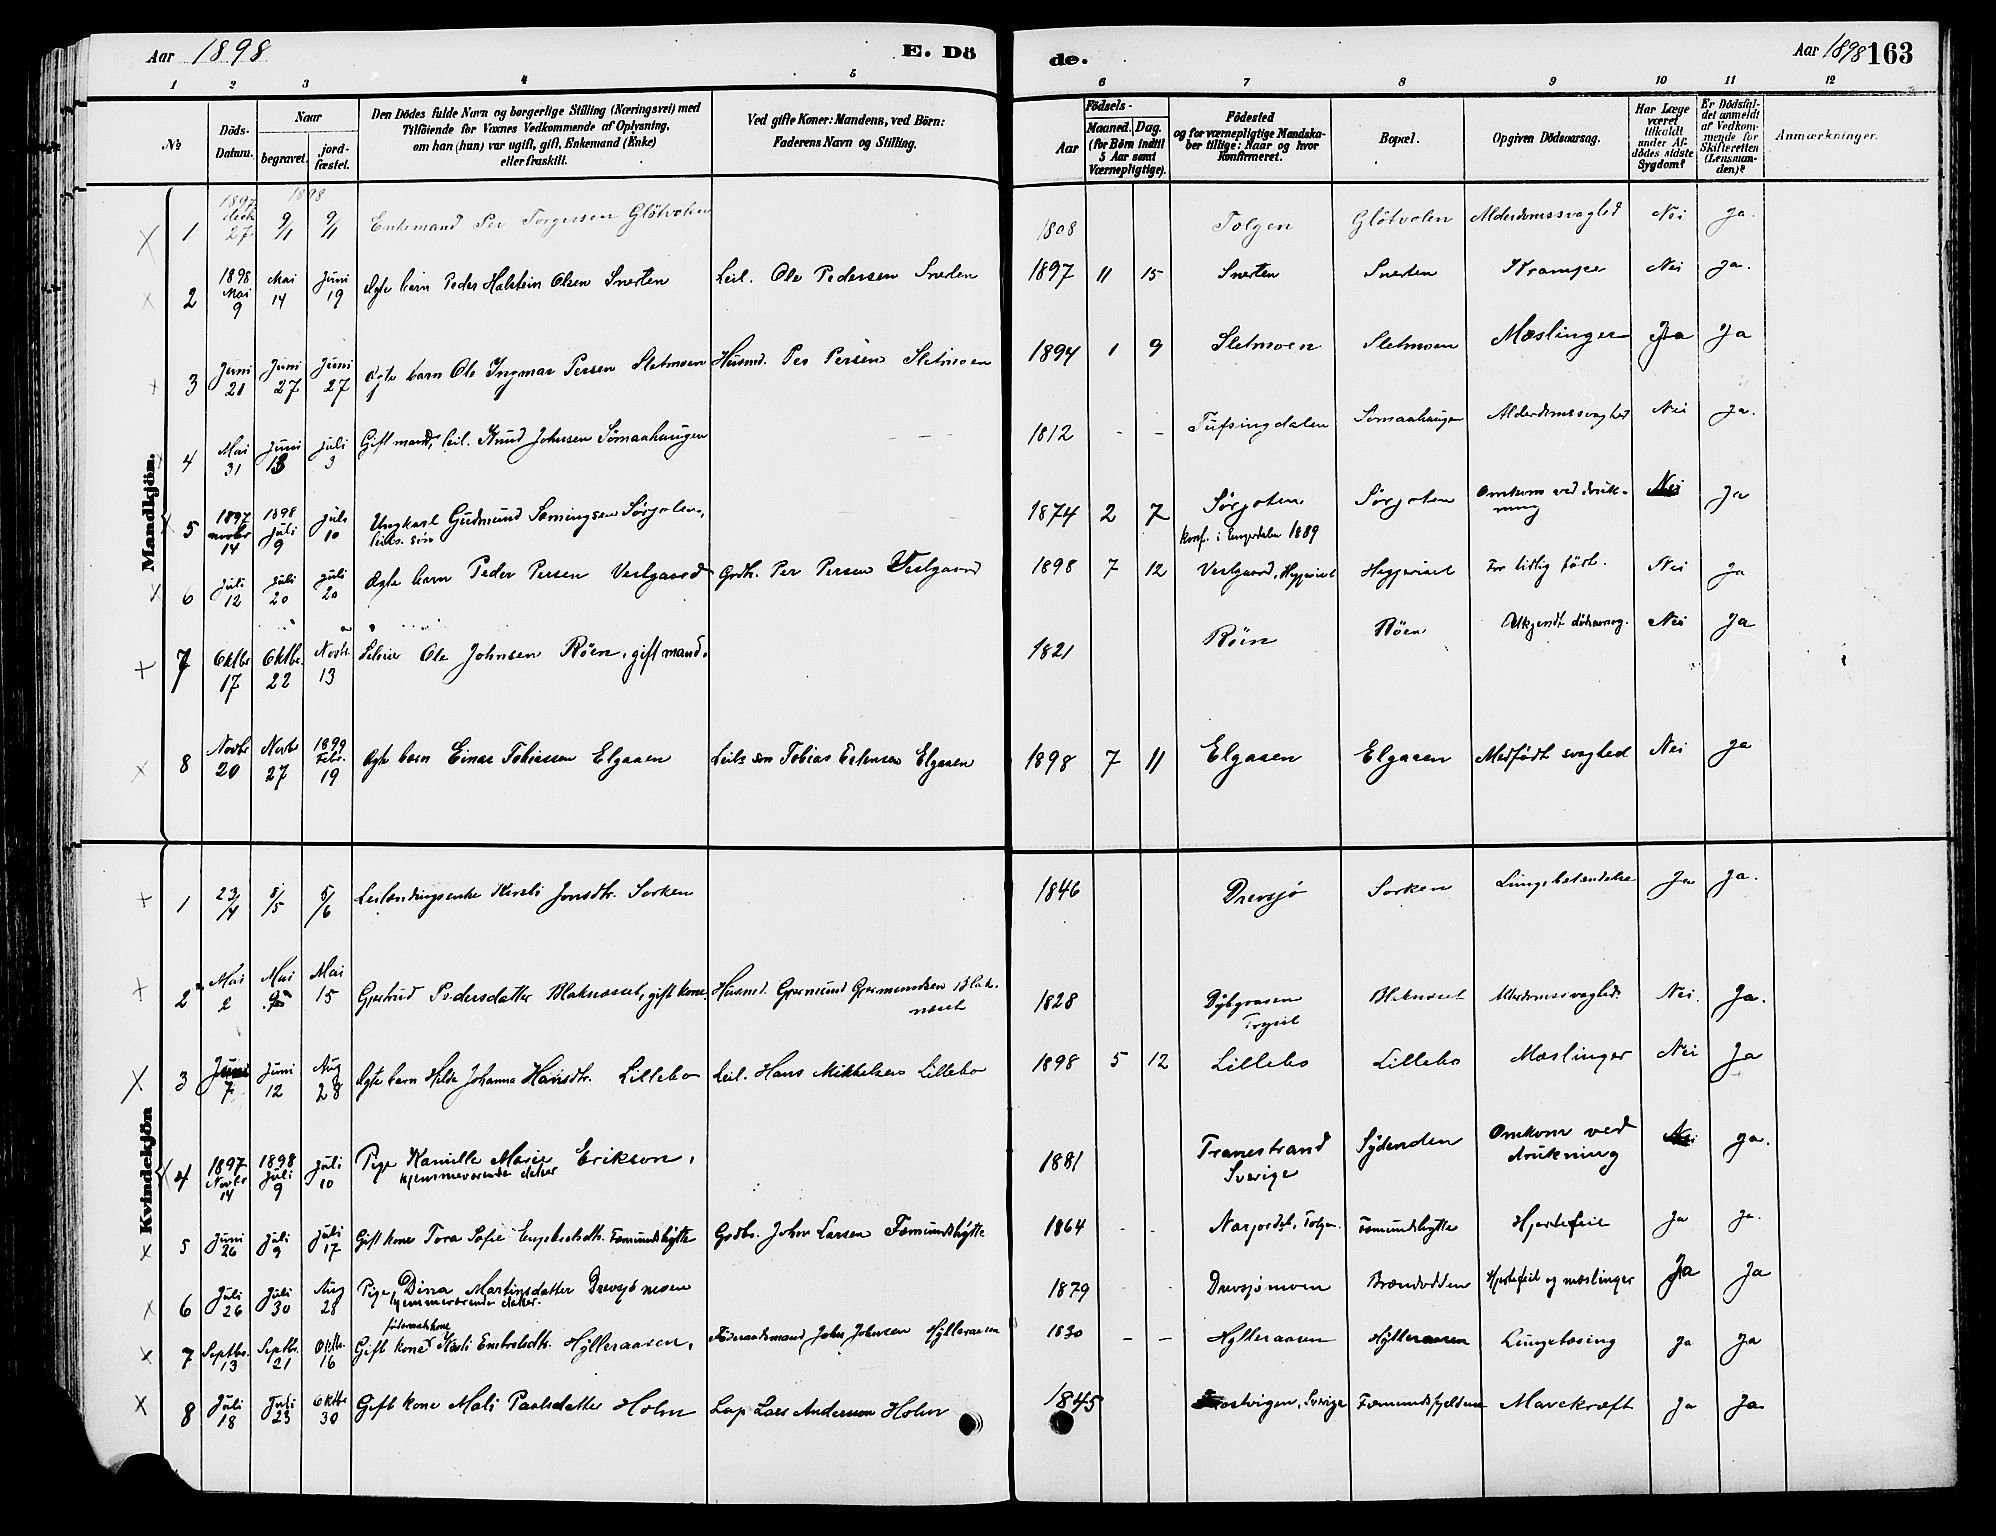 Aar 1898 E. Dö de. Aar 1898 163
1 2 3 4 5 6 7 8 9 10 11 12
№ Döds-Datum. Naar begravet. jord-fæstet. Den Dödes fulde Navn og borgerlige Stilling (Næringsvei) med Tilföiende for Voxnes Vedkommende af Oplysning, om han (hun) var ugift, gift, Enkemand (Enke) eller fraskilt. Ved gifte Koner: Mandens, ved Börn: Faderens Navn og Stilling. Födsels- Aar Maaned. Dag. (for Börn indtil 5 Aar samt Værnepligtige). Födested og for værnepligtige Mandskaber tillige: Naar og hvor Konfirmeret. Bopæl. Opgiven Dödsaarsag. Har Læge været tilkaldt under Afdödes sidste Sygdom? Er Dödsfaldet anmeldt af Vedkommende for Skifteretten (Lensmanden)? Anmærkninger.
Mandkjön.
1 1897 27 1898 9/1 9/1 Enkemand Per Torgersen Glötvolen 1808 Tolgen Glötvolen Alderdomssvaghed Nei Ja.
2 1898 Mai 9 Mai 14 Juni 19 Ægte barn Peder Halstein Olsen Snerten Leil. Ole Pedersen Snerten 1897 11 15 Snerten Snerten Krampe Nei Ja.
3 Juni 21 Juni 27 Juni 27 Ægte barn Ole Ingmar Persen Sletmoen Husmd. Per Persen Sletmoen 1894 1 9 Sletmoen Sletmoen Mæslinger Ja Ja
4 Mai 31 Juni 13 Juli 3 Gift mand, leil. Knud Johnsen Sömaahaugen 1812 - - Tufsingdalen Sömaahaugen Alderdomssvaghed Nei Ja.
5 1897 Novbr 14 1898 Juli 9 Juli 10 Ungkarl Gudmund Sörjoten, leils. sön 1874 2 7 Sörjoten konf. i Engerdalen 1889 Sörjoten Omkom ved drukning Nei Ja
6 Juli 12 Juli 20 Juli 20 Ægte barn Peder Persen Vestgaard Gbr. Per Persen Vestgaard 1898 7 12 Vestgaard, For tidlig född. Nei Ja
7 Oktbr 17 Oktbr. 22 Novbr. 13 Ole Johnsen Röen, gift mand. 1821 Röen Röen Ukjendt dödsaarsag. Nei Ja
8 Novbr 20 Novbr 27 1899 Febr. 19 Ægte barn Einar Tobiassen Elgaaen Leils sön Tobias Estensen Elgaaen 1898 7 11 Elgaaen Elgaaen Medfödt svaghed Nei Ja
Kvindekjön
1 23/4 8/5 5/6 Leilændingsenke Kersti Jonsdtr. Sorken 1846 Drevsjö Sorken Lungebetændelse Ja Ja.
2 Mai 2 Mai Mai 15 Gjertrud Pedersdatter Blaknæsset, gift kone. Husmd. Gjermund Gjermundsen Blaknæset 1828 Trysil Blaknæset Alderdomssvaghed. Nei. Ja.
3 Juni 7 Juni 12 Aug 28 Ægte barn Hilda Johanna Hansdtr. Lillebo Leil. Hans Mikkelsen Lillebo 1898 5 12 Lillebo Lillebo Mæslinger Nei Ja
4 1897 Novbr 14 1898 Juli 9 Juli 10 Pige Kamille Marie Erikson, hjemmeværende datter 1881 Tranestrand Sverige Sydenden Omkom ved drukning Nei Ja.
5 Juni 26 Juli 9 Juli 17 Gift kone Tora Sofie Engebretsdtr. Fæmundshytte Gdbr. John Larsen Fæmundshytte 1864 - - Narjordet, Tolgen. Fæmundshytte Hjertefeil Ja Ja.
6 Juli 26 Juli 30 Aug 28 Pige, Dina Martinsdatter Drevsjömoen hjemmeværende datter. 1879 - - Drevsjömoen Brændodden Hjertefeil og mæslinger Ja Ja
7 Septbr. 13 Septbr. 21 Oktbr. 16 Gift kone föderaadskone Kari Embretsdtr. Hylleraasen, Föderaadsmand John Johnsen Hylleraasen 1830 - - Hylleraasen Hylleraasen Lungetæring Ja Ja
8 Juli 18 Juli 23 Oktbr 30 Gift kone Mali Paalsdatter Holm Lap Lars Anderson Holm 1845 Sverige Fæmundsfjeldene Mavekræft Ja Ja